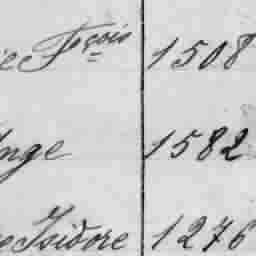 e Fçois 1508
Ange 1582
e Isidore 1276